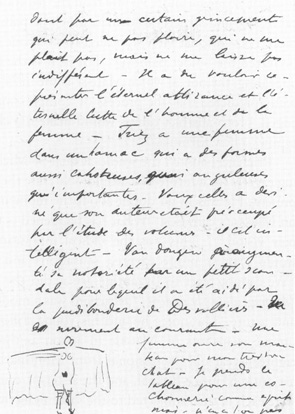 dant par un certain grincement
qui peut ne pas plaire, qui ne me
plait pas, mais ne me laisse pas
indifférent - Il a dû vouloir re-
présenter l'éternel attirance et l'é-
ternelle lutte de l'homme et de la
femme - a une femme
dans un hamac qui a des formes
aussi anguleuses
qu'importantes - a dessi-
né que son auteur était préoccupé
par l'étude des volumes - il est in-
telligent - Van Dongen a augmen-
té sa notoriété par un petit scan-
dale pour lequel il a été aidé par
la pudibonderie de
au courant - une
femme ouvre son man-
teau pour montrer son
chat - Je prends le
tableau pour une co-
chonnerie comme
mais - n'a